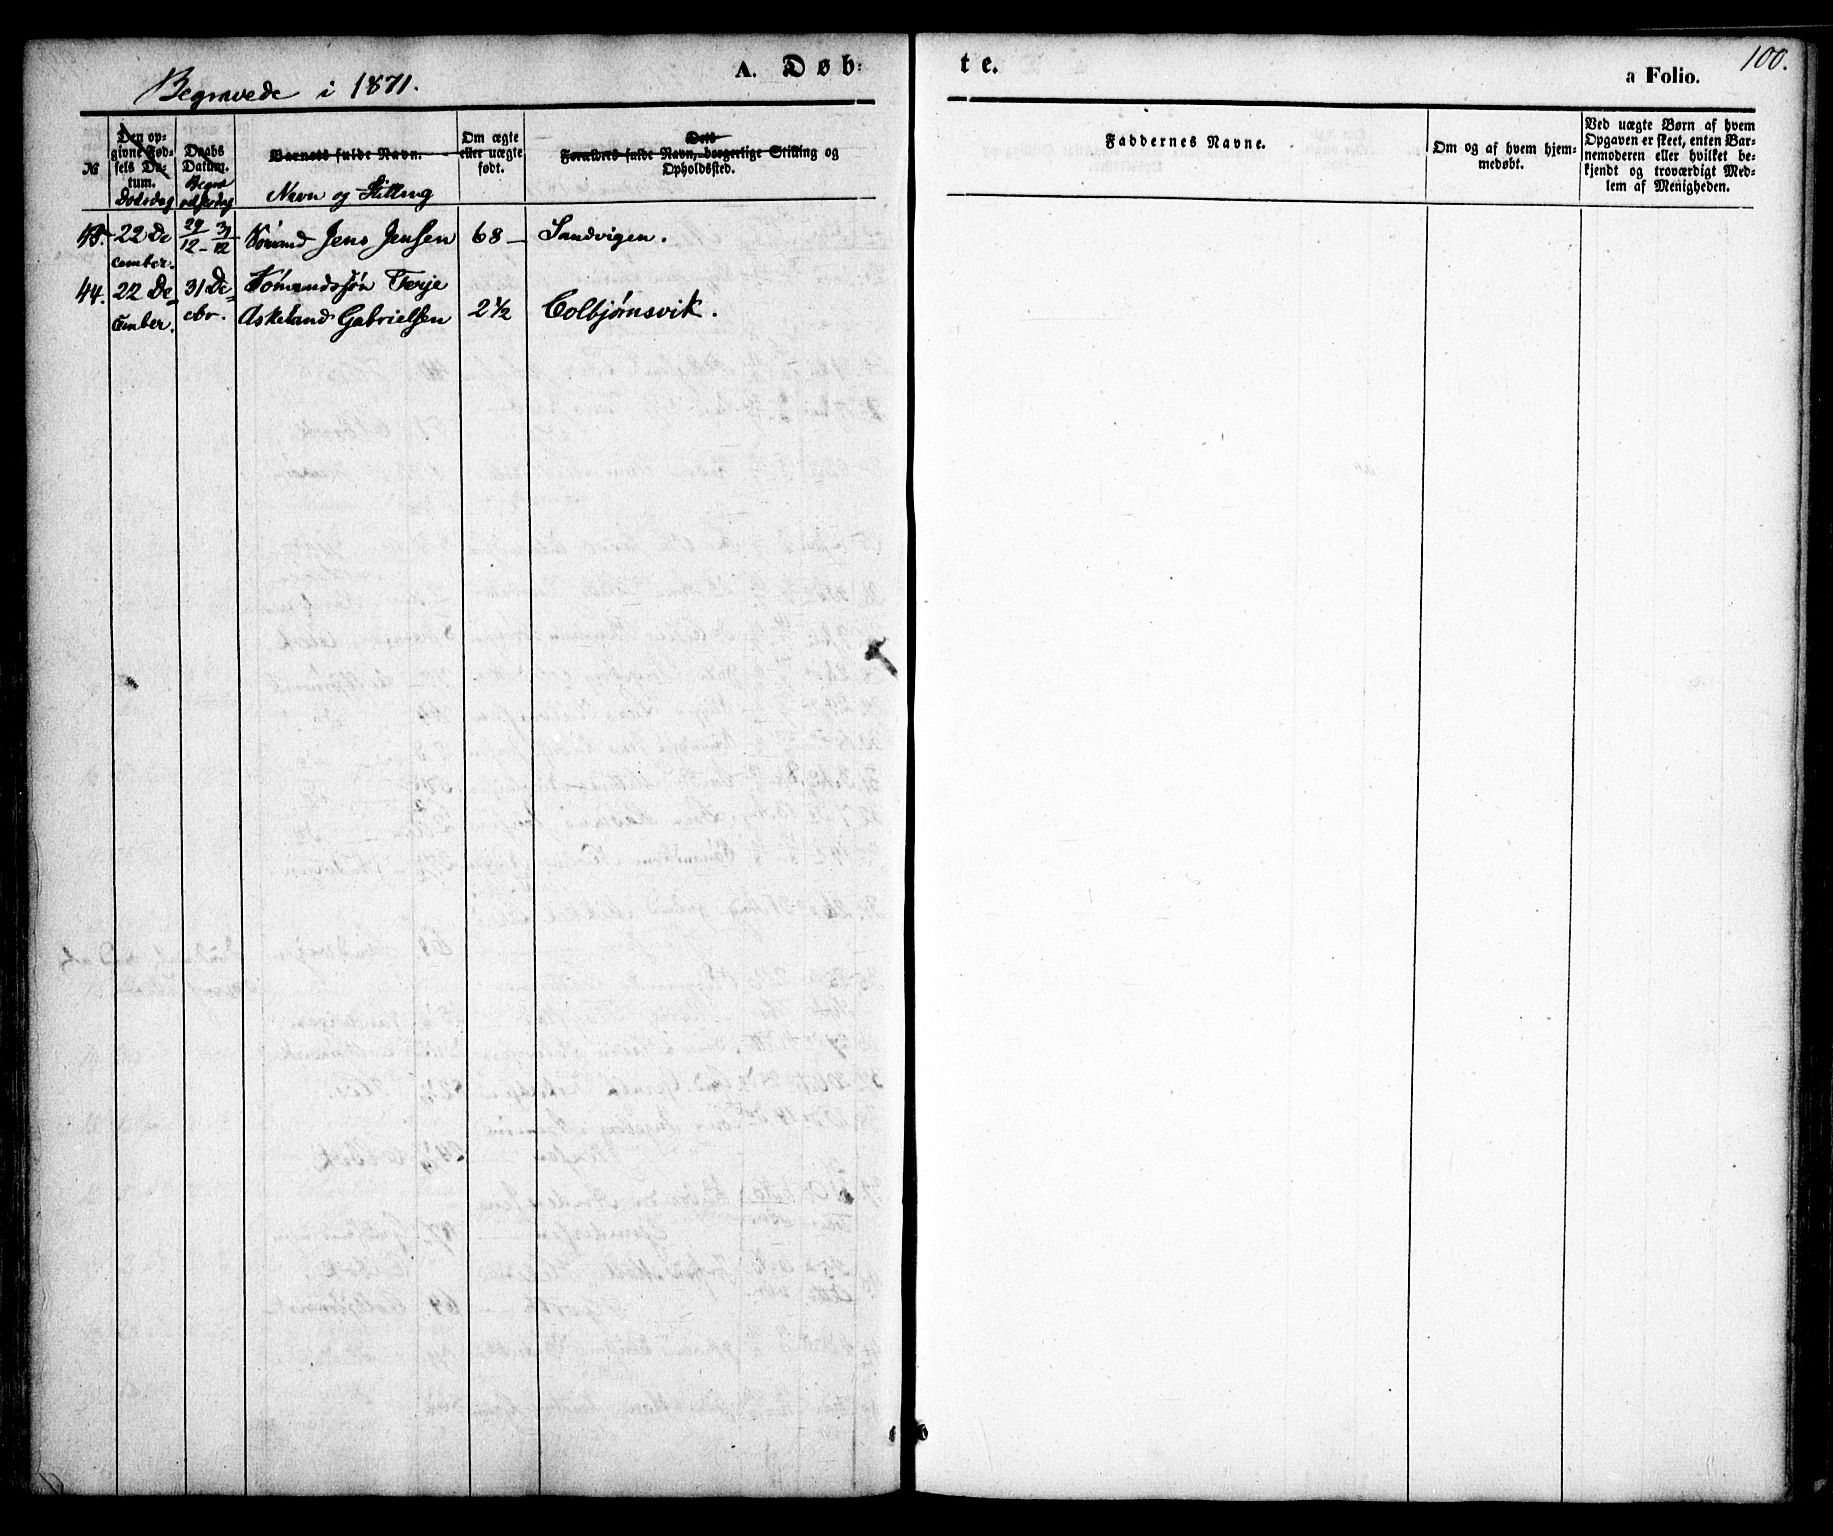 100.
A. Døb-
te.
a Folio.
Begravede i 1871.
No
Den op-
givne Fød-
sels Da-
tum.
Dødsdag
Daabs
Datum.
Begra
velsesdag
Barnets fulde Navn.
Navn og Stilling
Om ægte
eller uægte
født.
Dets
Forældres fulde Navn, borgerlige Stilling og
Opholdssted.
Faddernes Navne.
Om og af hvem hjem-
medøbt.
Ved uægte Børn af hvem
Opgaven er skeet, enten Bar-
nemoderen eller hvilket be-
kjendt og troværdigt Med-
lem af Menigheden.
43. 22 De 29/12 - 31/12 Sømand Jens Jensen 68 - Sandvigen.
cember.
44. 22 De- 31 De- Sømandssøn Terje
cember. cbr. Askeland Gabrielsen 2 1/2 Colbjørnsvik.